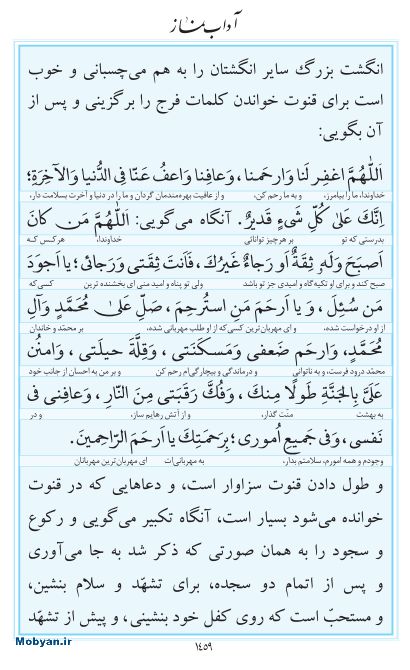 آداب نماز
انگشت بزرگ سایر انگشتان را به هم می‌چسبانی و خوب
است برای قنوت خواندن کلمات فرج را برگزینی و پس از
آن بگویی:
اَللّٰهُمَّ اغفِر لَنا وَارحَمنا ، وَعافِنا وَاعفُ عَنّا فِی الدُّنیا وَالآخِرَةِ؛
خداوندا، ما را بیامرز، و به ما رحم کن، و از عافیت بهره‌مندمان گردان و ما را در دنیا و آخرت بسلامت دار،
اِنَّكَ عَلىٰ كُلِّ شَیءٍ قَدیرٌ. آنگاه می‌گویی: اَللّٰهُمَّ مَن كانَ
بدرستی که تو بر هر چیز توانائی خداوندا، هر کس که
اَصبَحَ وَلَهُ ثِقَةٌ اَو رَجاءٌ غَیرُكَ ، فَاَنتَ ثِقَتی وَرَجائی؛ یا اَجوَدَ
صبح کند و برای او تکیه‌گاه و امیدی جز تو باشد ولی تو پناه و امید منی ای بخشنده ترین کسی‌که
مَن سُئِلَ ، وَ یا اَرحَمَ مَنِ استُرحِمَ ، صَلِّ عَلىٰ مُحَمَّدٍ وَآلِ
از او درخواست شده، و ای مهربان‌ترین کسی که از او طلب مهربانی شده، بر محمّد و خاندان
مُحَمَّدٍ، وَارحَم ضَعفی وَمَسكَنَتی ، وَقِلَّةَ حیلَتی ، وَامنُن
محمّد درود فرست، و به ناتوانی و درماندگی و بیچارگی‌ام رحم کن و بر من به احسان از جانب خود
عَلَیَّ بِالجَنَّةِ طَولًا مِنكَ ، وَفُكَّ رَقَبَتی مِنَ النّارِ ، وَعافِنی فی
به بهشت منّت گذار، و از آتش رهایم ساز، و در
نَفسی ، وَفی جَمیعِ اُموری؛ بِرَحمَتِكَ یا اَرحَمَ الرّاحِمینَ.
وجودم و همه امورم، سلامتم بدار، به مهربانی‌ات ای مهربان‌ترین مهربانان
و طول دادن قنوت سزاوار است، و دعاهایی که در قنوت
خوانده می‌شود بسیار است، آنگاه تکبیر می‌گویی و رکوع
و سجود را به همان صورتی که ذکر شد به جا می‌آوری
و پس از اتمام دو سجده، برای تشهّد و سلام بنشین،
و مستحبّ است که روی کفل خود بنشینی، و پیش از تشهّد
Mobyan.ir
۱٤٥٩